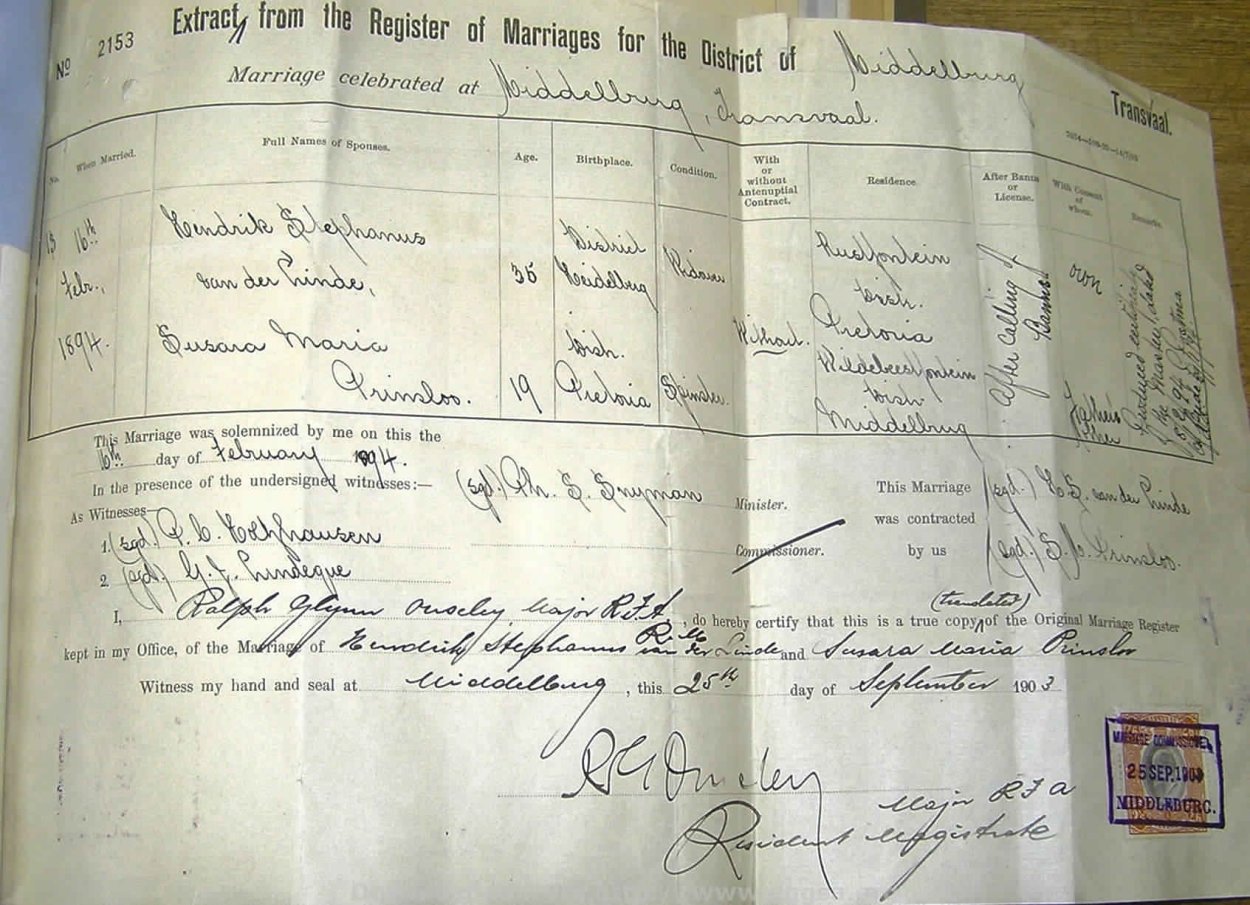 Nº 2153
Extract, from the Register of Marriages for the District of Middelburg
Transvaal.
Marriage celebrated at Middelburg, Transvaal.
No. When Married. Full Names of Spouses. Age. Birthplace. Condition. With or without Antenuptial Contract. Residence. After Banns or License. With Consent of whom. Remarks.
16th Febr., 1894.
Hendrik Stephanus
van der Linde,
District Heidelberg
Rustfontein
Pretoria
own
Susara Maria
Prinsloo.
19
Dist. Pretoria
Spinster.
Without.
Wildebeestfontein
Dist.
Middelburg
After Calling of Banns
Father
This Marriage was solemnized by me on this the
16th day of February 1894.
In the presence of the undersigned witnesses:—
(sgd.) Ph. S. Snyman Minister.
This Marriage (sgd.) H. S. van der Linde
As Witnesses—
was contracted
1. (sgd.)
Commissioner.
by us (sgd.) S. M. Prinsloo.
2 (sgd.) G. J. Lindeque
I, Ralph Glynn Ouseley, Major R.F.A., do hereby certify that this is a true copy (translated) of the Original Marriage Register
kept in my Office, of the Marriage of Hendrik Stephanus van der Linde and Susara Maria Prinsloo
Witness my hand and seal at Middelburg, this 25th day of September 1903
R G Ouseley
Major R F A
Resident Magistrate
MARRIAGE COMMISSIONER
25 SEP. 1903
MIDDLEBURG.